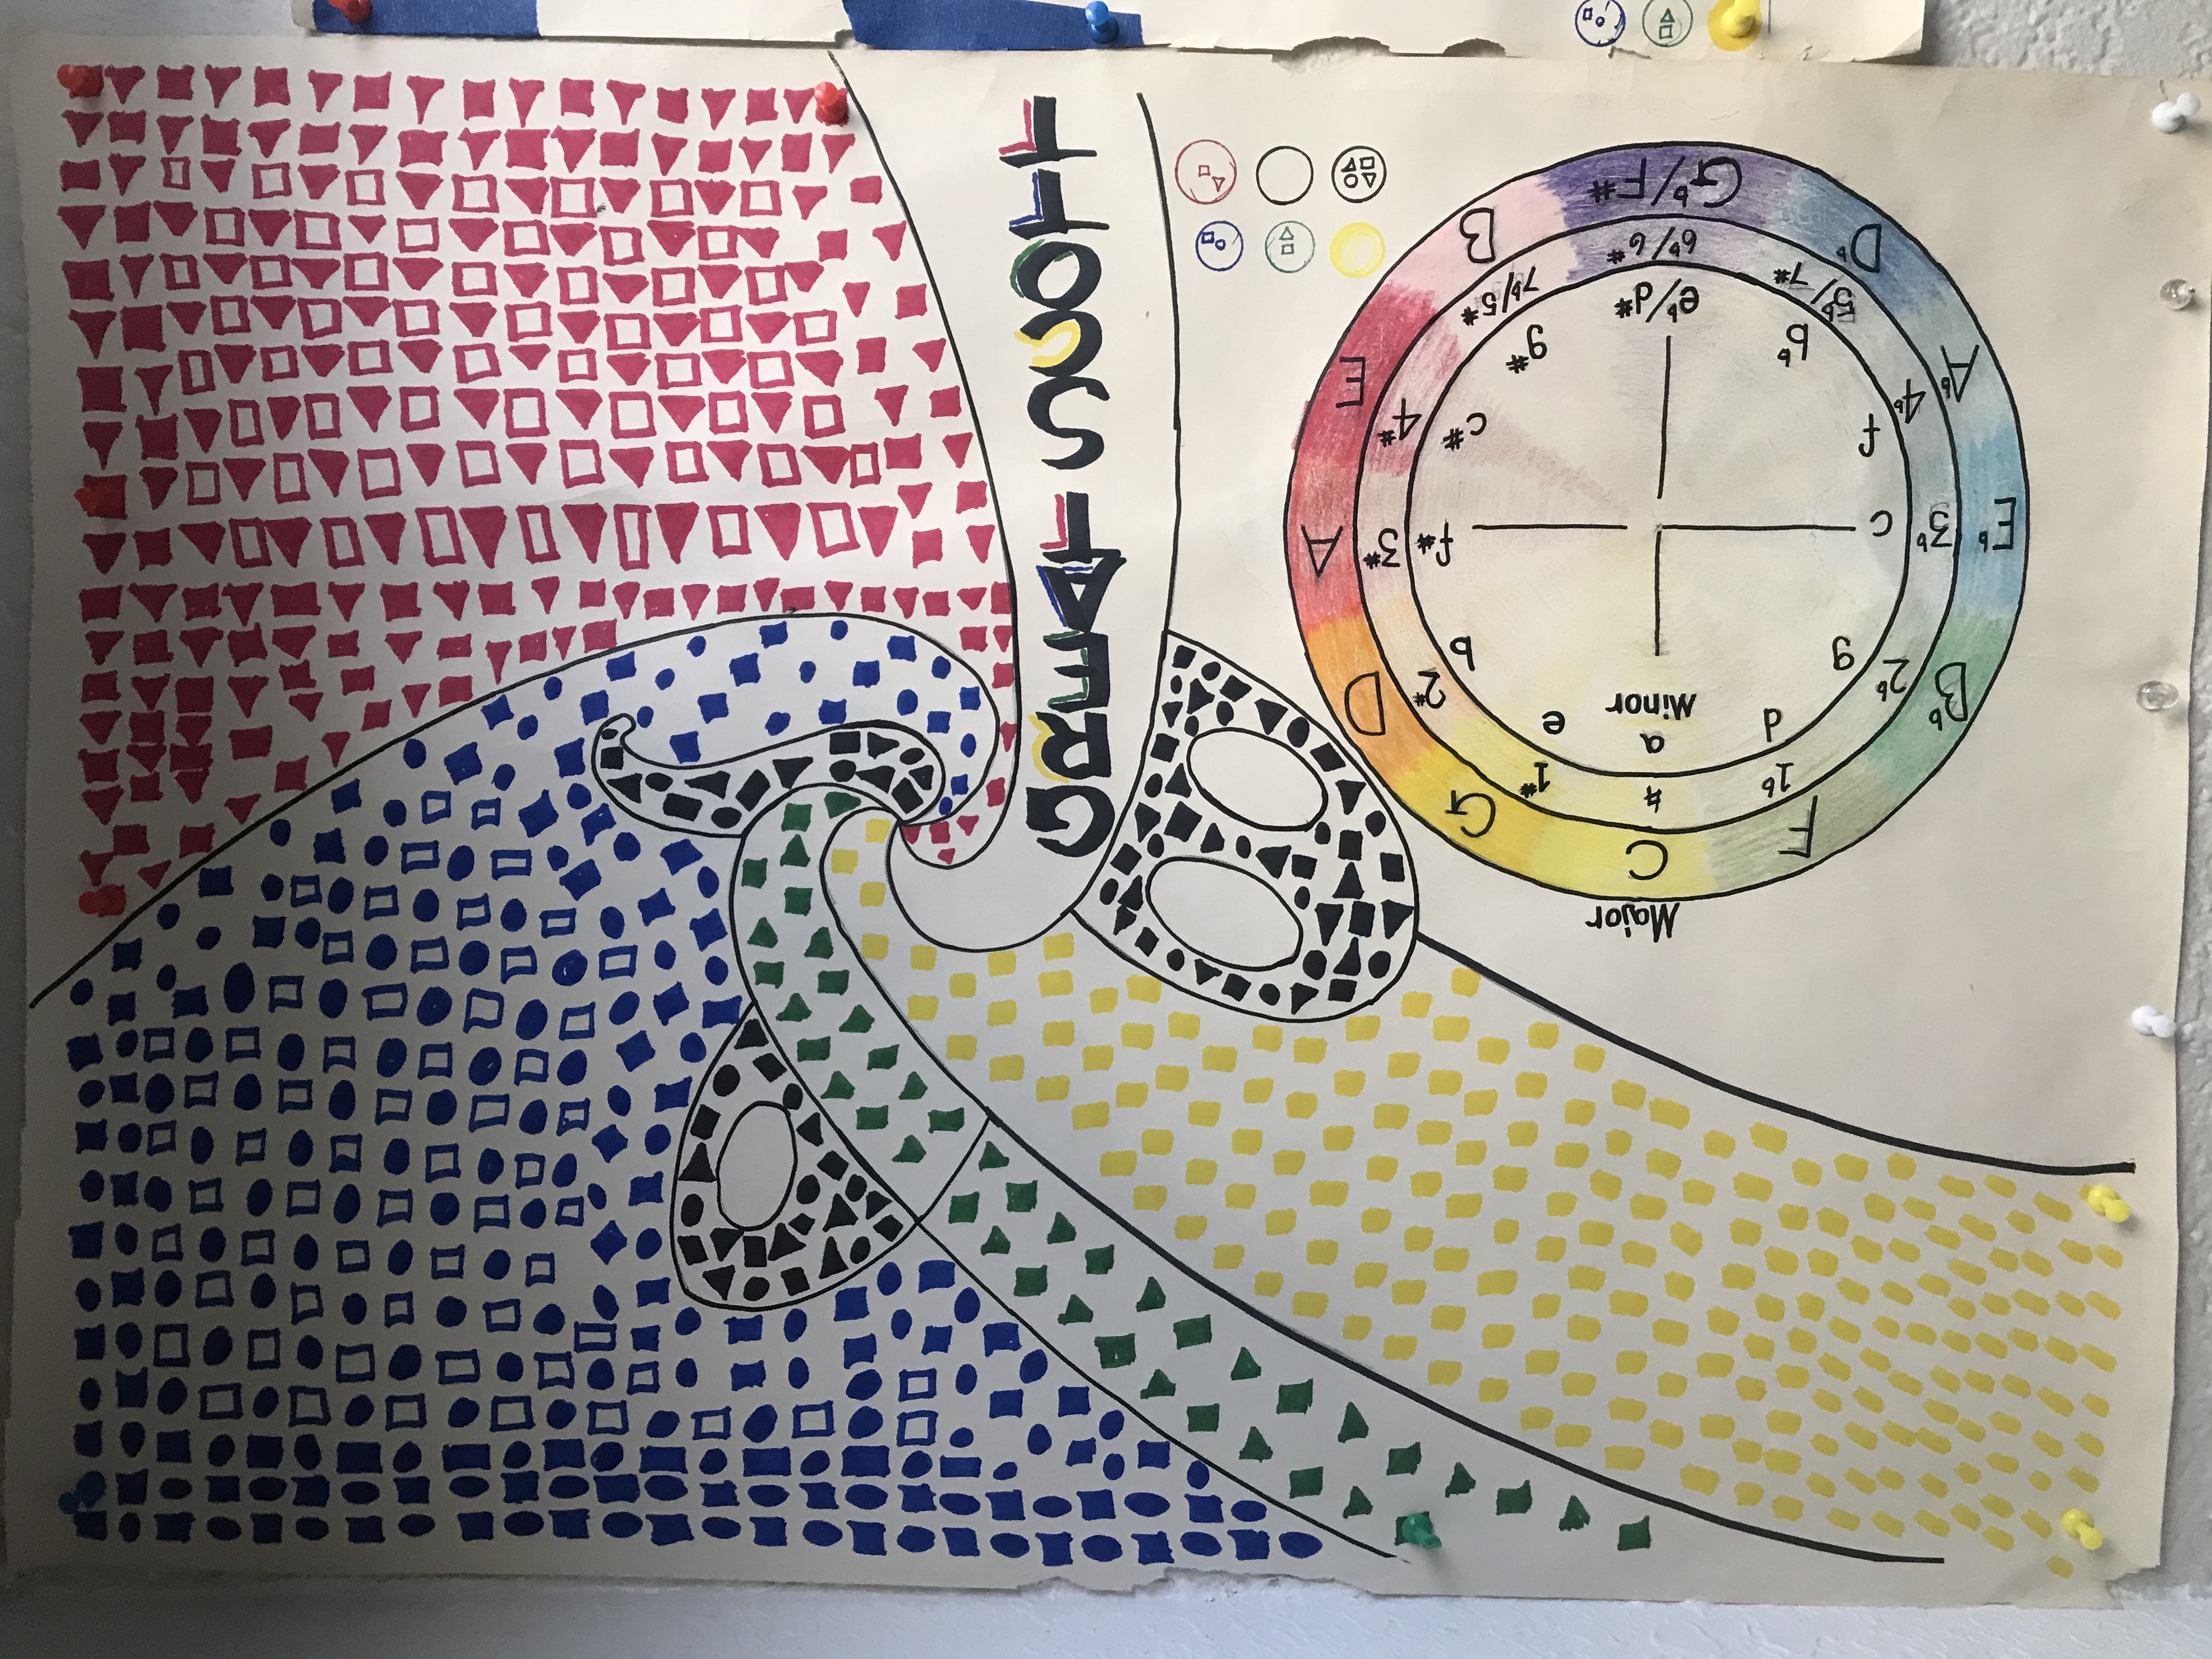 Major
C
G
D
A
E
B
G♭/F#
D♭
A♭
E♭
B♭
F
♮
1#
2#
3#
4#
7♭/5#
6♭/6#
5♭/7#
4♭
3♭
2♭
1♭
a
Minor
e
b
f#
c#
g#
e♭/d#
b♭
f
c
g
d
GREAT SCOTT